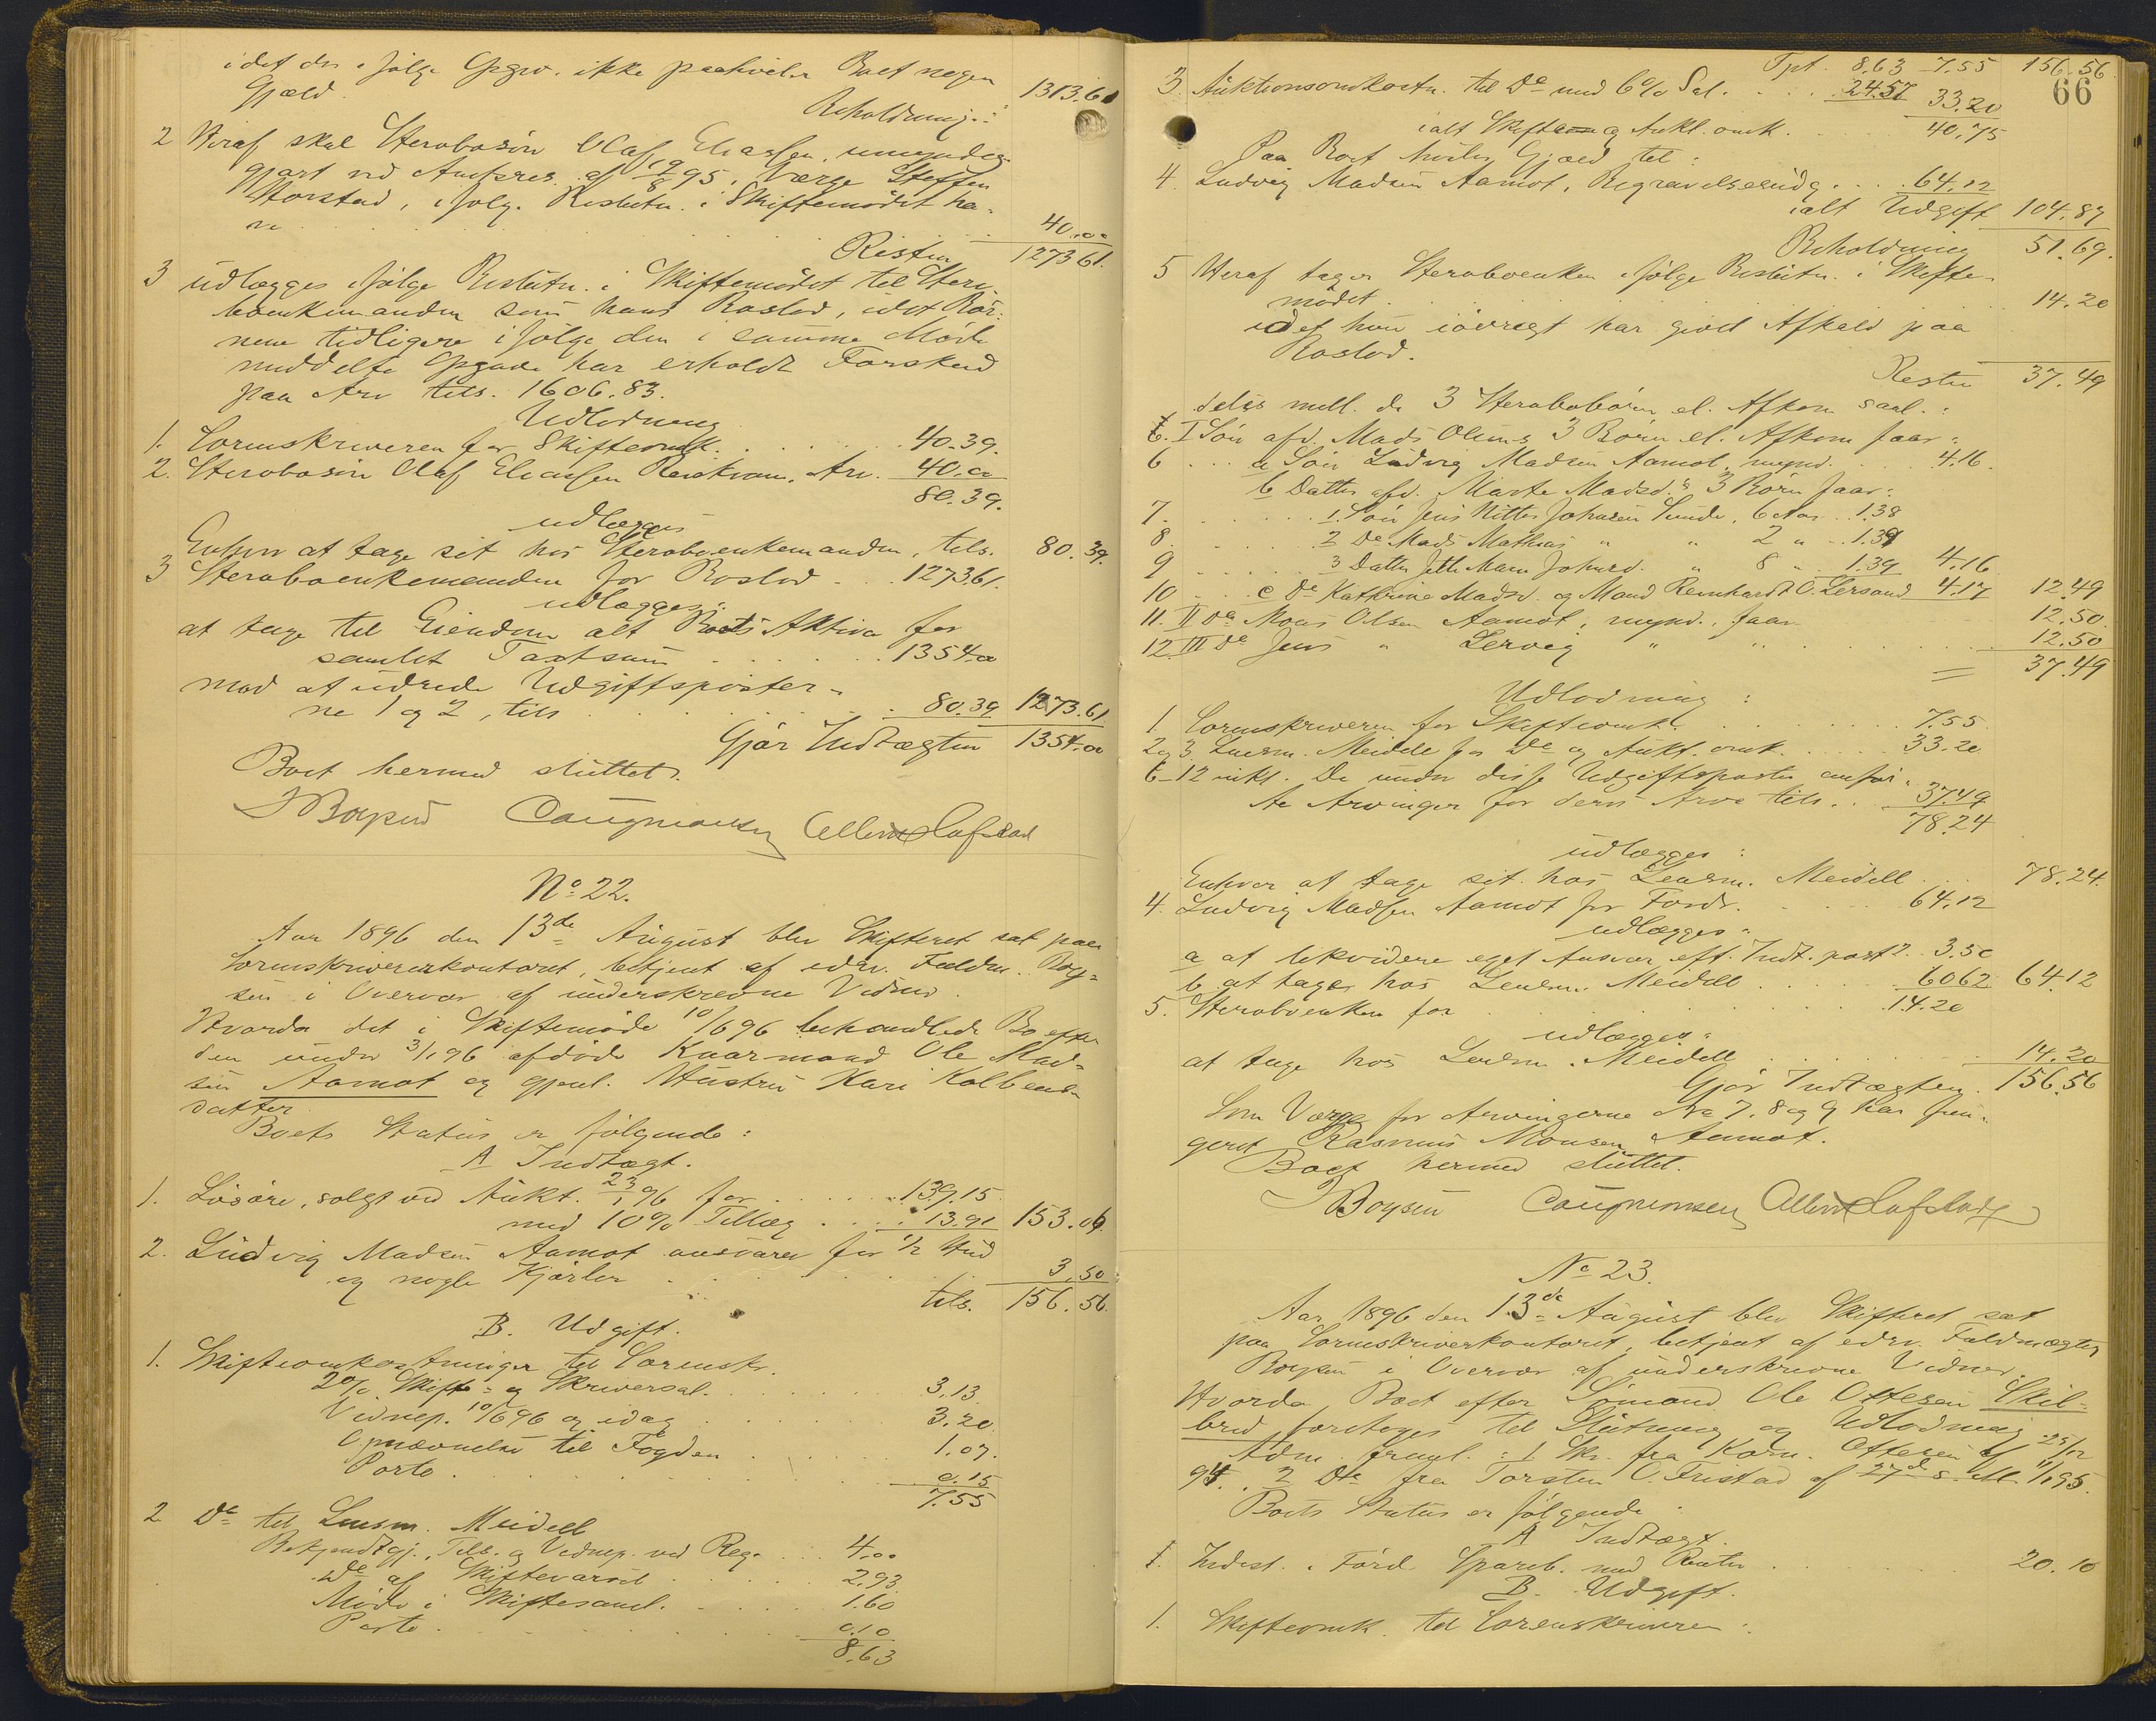 idet der i følge Opgav. ikke paahviler Boet nogen
Gjæld. 1313.61
Beholdning:
2 Heraf skal Sterbosøn Olaf Eliassen, umyndig
gjort ved Amtsres. af 19/8 95, Værge Steffen
Horstad, i følg. Beslutn. i Skiftemødet ha-
ve 40.00
Resten 1273 61.
3 udlægges ifølge Beslutn. i Skiftemødet til Sterv-
boenkemanden som hans Boslod, idet Bør-
nene tidligere i følge den i samme Møde
meddelte Opgave har erholdt Forskud
paa Arv tils. 1606.83.
Udlodning
1. Sorenskriveren for Skifteomk. 40.39.
2. Stervbosøn Olaf Eliassen Arv. 40.00
80.39.
udlægges
Enhver at tage sit hos Stervboenkemanden, tils. 80.39.
3 Stervboenkemanden for Boslod 1273.61.
udlægges:
at tage til Eiendom alt Boets Aktiva for
samlet Taxtsum 1354.00
mod at udrede Udgiftsposter-
ne 1 og 2, tils 80.39 1273.61
Gjør Indtægten 1354.00
Boet hermed sluttet.
Boysen
No 22.
Aar 1896 den 13de August blev Skifteret sat paa
Sorenskriverkontoret, betjent af edsv. Fuldm. Boy-
sen i Overvær af underskrevne Vidner.
Hvorda det i Skiftemøde 10/6 96 behandlede Bo efter
den under 3/1 96 afdøde Kaarmand Ole Mad-
sen Aamot og gjenl. Hustru Kari Kolbens-
datter
Boets Status er følgende:
A Indtægt.
1. Løsøre, solgt ved Aukt. 23/1 96 for 139.15
med 10% Tillæg 13.91 153.06
2. Ludvig Madsen Aamot ansvarer for 1/2 Hud
og nogle Kjørler 3.50
tils. 156.56.
B. Udgift.
1. Skifteomkostninger til Sorenskr.
2% Skifte- og Skriversal. 3.13
Vidnep. 10/6 96 og idag 3.20
Opnævnelse til Fogden 1.07.
Porto 0.15
7.55
2 Do til Lensm. Meidell
Bekjendtgj., Tills. og Vidnep. ved Reg. 4.00
Do af Skiftevarsel 2.93
Møde i Skiftesaml. 1.60
Porto 0.10
8.63
66
Tpt. 8.63 7.55 156.56
3. Auktionsomkostn. til Do med 6% Sal. 24.57 33.20
ialt Skifte og Aukt. omk. 40.75
Paa Boet hviler Gjæld til:
4. Ludvig Madsen Aamot, Begravelsesudg. 64.12
ialt Udgift 104.87
Beholdning 51.69.
5 Heraf tager Stervboenken ifølge Beslutn. i Skifte-
mødet 14.20
idet hun iøvrigt har givet Afkald paa
Boslod.
Resten 37.49
deles mell. de 3 Stervbobørn el. Afkom saal.:
6. I Søn afd. Mads Olsens 3 Børn el. Afkom faar:
6 a Søn Ludvig Madsen Aamot, mynd. 4.16.
b Datter afd. Marte Madsd.s 3 Børn faar:
7. 1. Søn Jens Nitter Johnsen Sunde, 6 Aar 1.38
8. 2 Do Mads Mathias " " 2 " 1.39
9 3 Datter Jethe Marie Johnsd. " 8 " 1.39 4.16
10 c Do Kathrine Madsd. og Mand Reinhardt O. Lersand 4.17 12.49
11. II Do Mons Olsen Aamot, mynd., faar 12.50.
12. III Do Jens " Lervig " " 12.50
= 37.49
Udlodning:
1. Sorenskriveren for Skifteomk. 7.55
2 og 3 Lensm. Meidell for Do og Aukt. omk. 33.20
6-12 inkl. De under disse Udgiftsposter anfør-
te Arvinger for deres Arve tils. 37.49
78.24
udlægges:
Enhver at tage sit hos Lensm. Meidell 78.24.
4. Ludvig Madsen Aamot for Fordr. 64.12
udlægges:
a at likvidere eget Ansvar eft. Indt. post 2. 3.50
b at tage hos Lensm. Meidell 60.62 64.12
5. Stervboenken for 14.20
udlægges:
at tage hos Lensm. Meidell 14.20
Gjør Indtægten. 156.56
Som Værge for Arvingerne No 7, 8 og 9 har fun-
geret Rasmus Monsen Aamot.
Boet hermed sluttet.
Boysen
No 23.
Aar 1896 den 13de August blev Skifteret sat
paa Sorenskriverkontoret, betjent af edsv. Fuldmægtig
Boysen i Overvær af underskrevne Vidner.
Hvorda Boet efter Sømand Ole Ottesen Skil-
bred foretoges til Slutning og Udlodning
Adm. freml.: 1 Skr. fra Korn. Ottesen af 29/12
94. 2 Do fra Torsten O. Fristad af 27de s. M. 11/1 95.
Boets Status er følgende:
A Indtægt.
1. Indest. i Førd. Spareb. med Renter 20.10
B. Udgift.
1. Skifteomk. til Sorenskriveren: